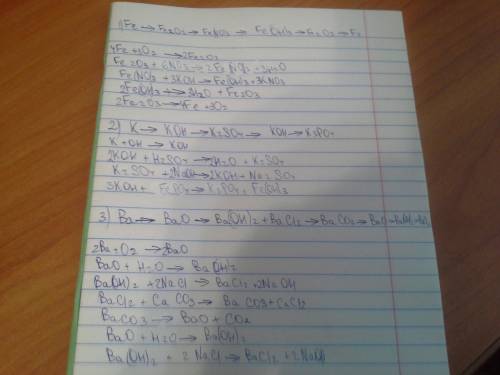 1) Fe → Fe2O3 → FeNO3 → Fe(OH)3 → Fe2O3 → Fe
4Fe + 3O2 → 2Fe2O3
Fe2O3 + 6NO3 → 2Fe
Fe(NO3)3 + 3KOH → Fe(OH)3 + 3KNO3
2Fe(OH)3 → 3H2O + Fe2O3
2Fe2O3 → 4Fe + 3O2
2) K → KOH → K2SO4 → KOH → K3PO4
K + OH → KOH
2KOH + H2SO4 → 2H2O + K2SO4
K2SO4 + 2NaOH → 2KOH + Na2SO4
3KOH + FePO4 → K3PO4 + Fe(OH)3
3) Ba → BaO → Ba(OH)2 + BaCl2 → BaCO3 → BaO →
2Ba + O2 → 2BaO
BaO + H2O → Ba(OH)2
Ba(OH)2 + 2NaCl → BaCl2 + 2NaOH
BaCl2 + CaCO3 → BaCO3 + CaCl2
BaCO3 → BaO + CO2
BaO + H2O → Ba(OH)2
Ba(OH)2 + 2NaCl → BaCl2 + 2NaOH